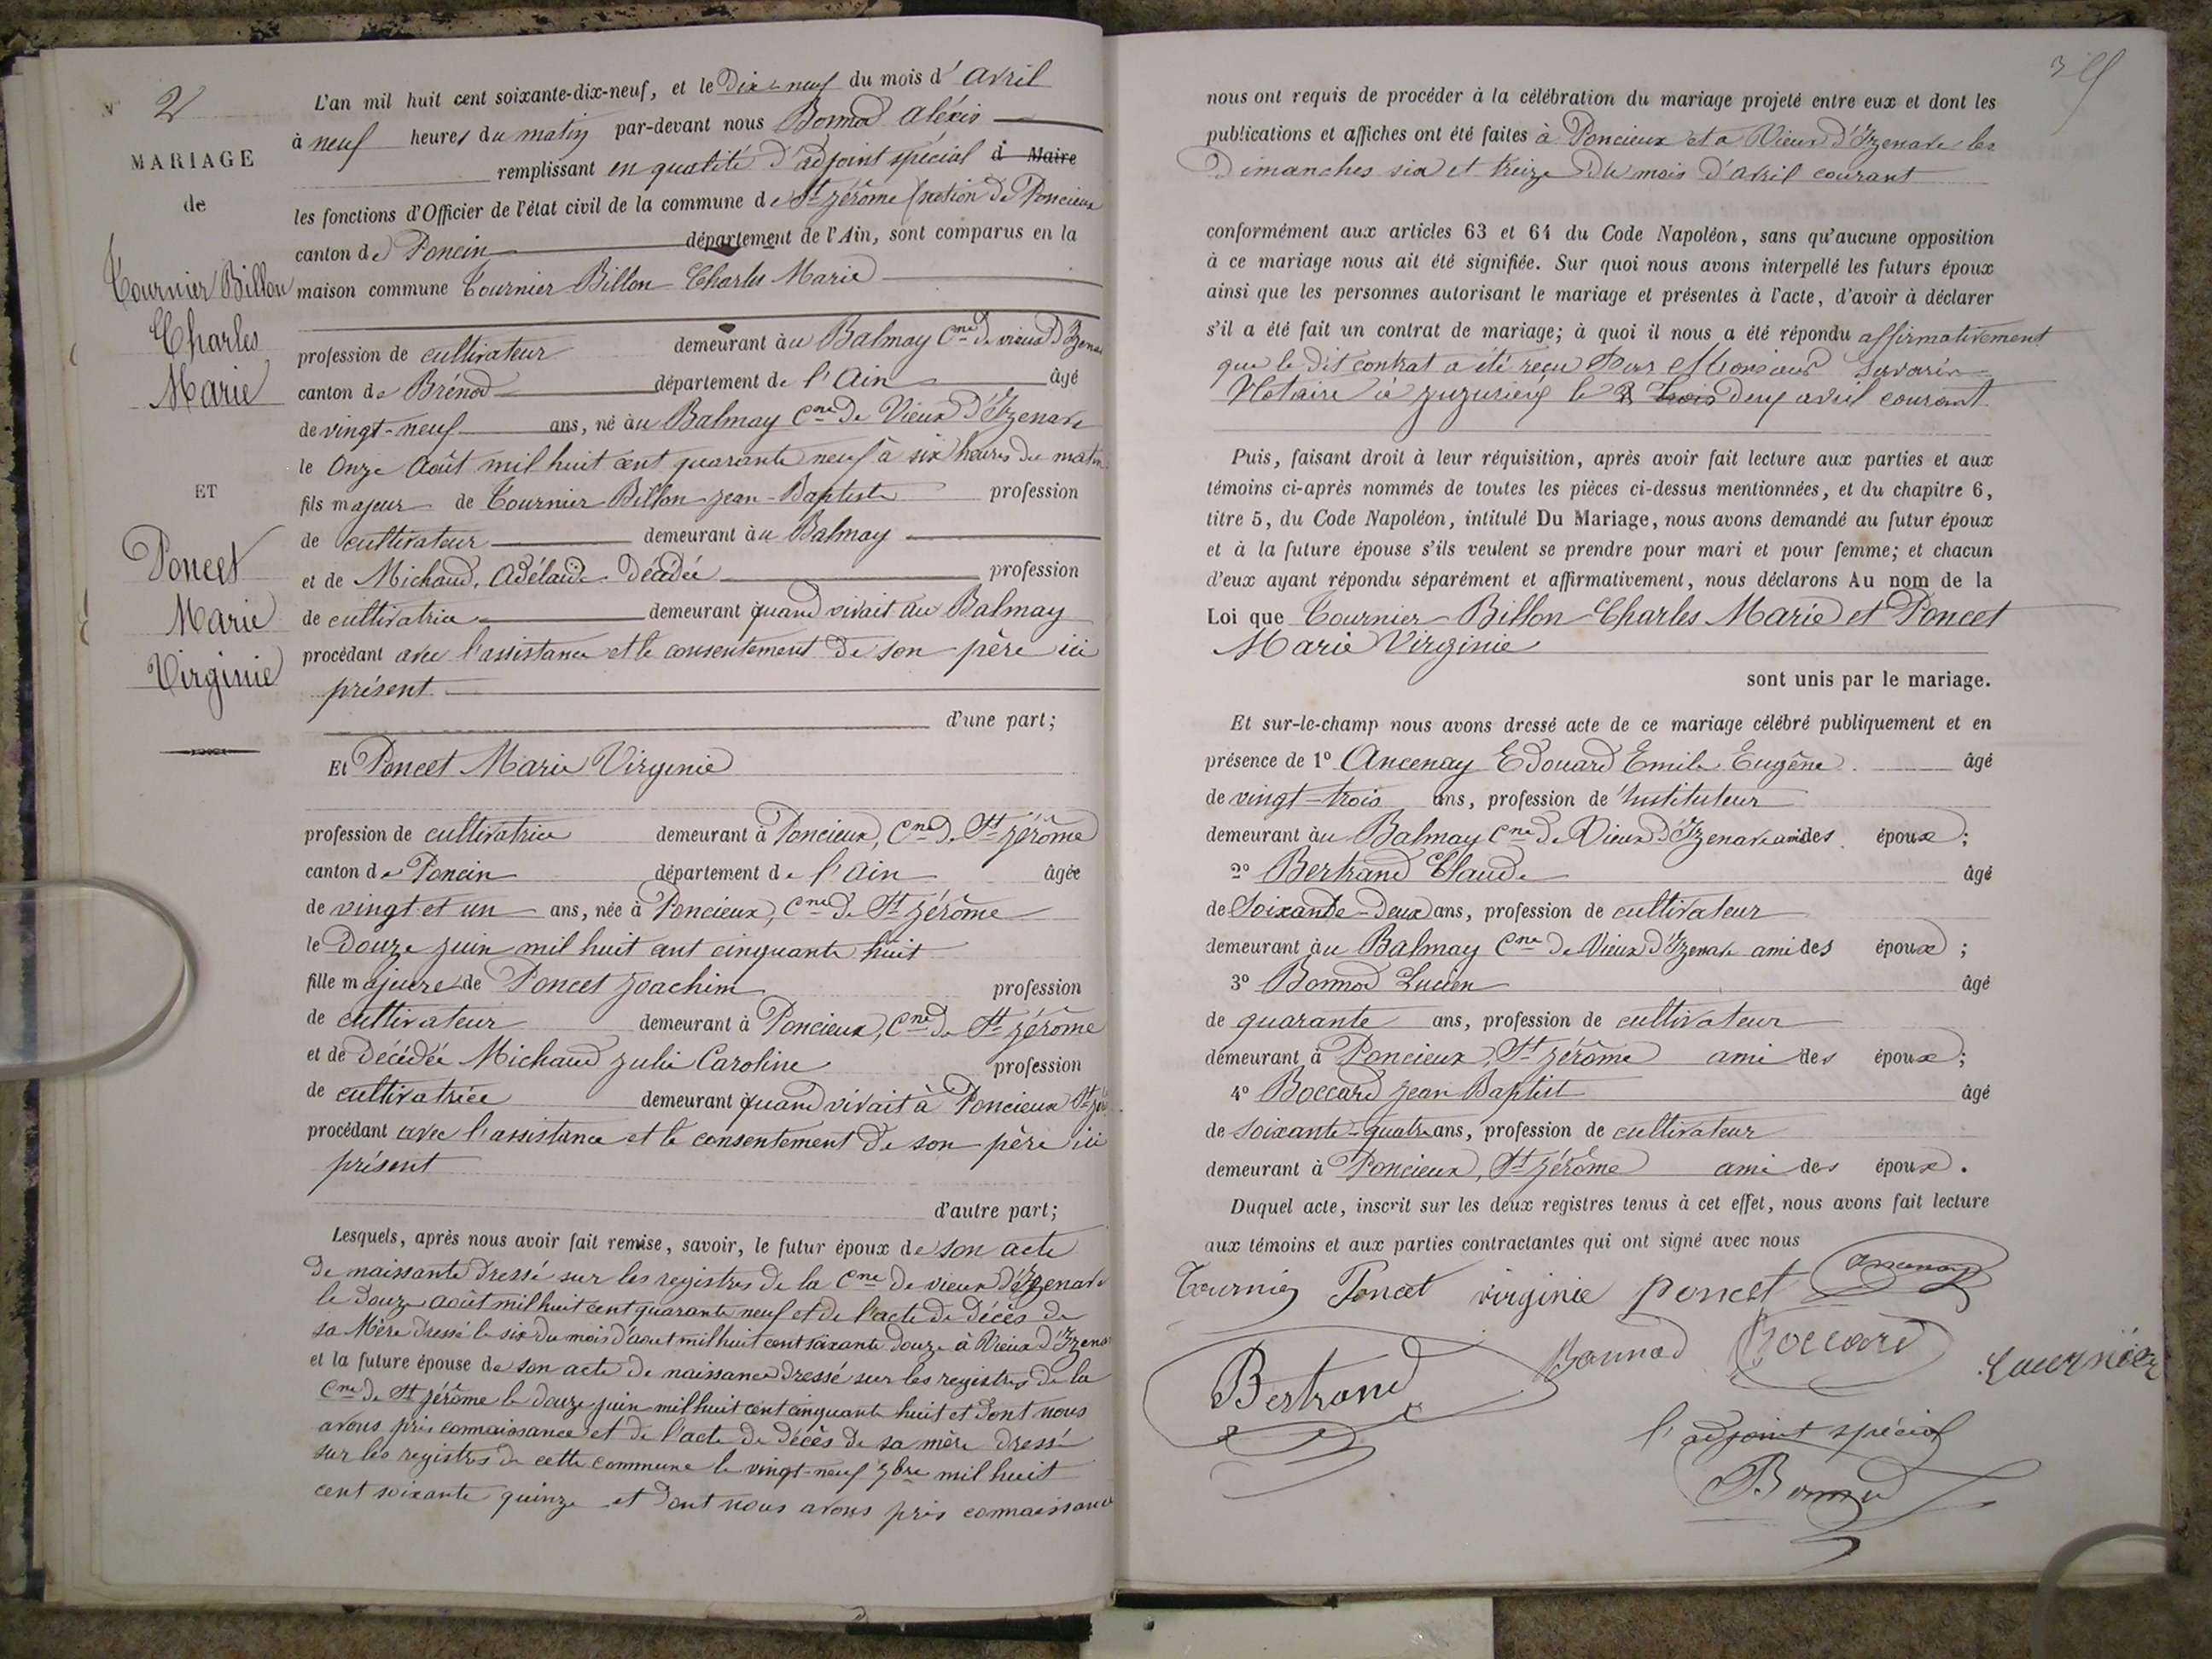 N° 2
MARIAGE
de
Tournier Billon
Charles
Marie
ET
Poncet
Marie
Virginie
L'an mil huit cent soixante-dix-neuf, et le Dix-neuf du mois d' avril
à neuf heures du matin par-devant nous Bonnod Aléxis
remplissant en qualité d'adjoint spécial d Maire
les fonctions d'Officier de l'état civil de la commune de St Jérôme (section de Poncieux
canton de Poncin département de l'Ain, sont comparus en la
maison commune Tournier Billon Charles Marie
profession de cultivateur demeurant à u Balmay Cne de vieux d'Izena
canton de Brénod département de l'Ain âgé
de vingt-neuf ans, né à u Balmay Cne de Vieux d'Izenave
le Onze Août mil huit cent quarante neuf à six heures du matin
fils majeur de Tournier Billon Jean-Baptiste profession
de cultivateur demeurant à u Balmay
et de Michaud, Adélaide décédée profession
de cultivatrice demeurant quand vivait au Balmay
procédant avec l'assistance et le consentement de son père ici
présent
d'une part;
Et Poncet Marie Virginie
profession de cultivatrice demeurant à Poncieux, Cne de St Jérôme
canton de Poncin département de l'Ain âgée
de vingt et un ans, née à Poncieux, Cne de St Jérôme
le Douze juin mil huit cent cinquante huit
fille majeure de Poncet Joachim profession
de cultivateur demeurant à Poncieux, Cne de St Jérôme
et de décédée Michaud Julie Caroline profession
de cultivatrice demeurant quand vivait à Poncieux St Jér
procédant avec l'assistance et le consentement de son père ici
présent
d'autre part;
Lesquels, après nous avoir fait remise, savoir, le futur époux de son acte
de naissante dressé sur les registres de la Cne de vieux d'Izenave
le douze août mil huit cent quarante neuf et de l'acte de décès de
sa Mère dressé le six du mois d'aout mil huit cent soixante douze à Vieux d'Izena
et la future épouse de son acte de naissance dressé sur les registres de la
Cne de St Jérôme le douze juin mil huit cent cinquante huit et dont nous
avons pris connaissance et de l'acte de décès de sa mère dressé
sur les registres de cette commune le vingt-neuf 9bre mil huit
cent soixante quinze et dont nous avons pris connaissance
nous ont requis de procéder à la célébration du mariage projeté entre eux et dont les
publications et affiches ont été faites à Poncieux et a Vieux d'Izenave les
Dimanches six et treize du mois d'avril courant
conformément aux articles 63 et 64 du Code Napoléon, sans qu'aucune opposition
à ce mariage nous ait été signifiée. Sur quoi nous avons interpellé les futurs époux
ainsi que les personnes autorisant le mariage et présentes à l'acte, d'avoir à déclarer
s'il a été fait un contrat de mariage; à quoi il nous a été répondu affirmativement
que le dit contrat a été reçu Par Monsieur Savarin
Notaire à Jujurieux le trois deux avril courant
Puis, faisant droit à leur réquisition, après avoir fait lecture aux parties et aux
témoins ci-après nommés de toutes les pièces ci-dessus mentionnées, et du chapitre 6,
titre 5, du Code Napoléon, intitulé Du Mariage, nous avons demandé au futur époux
et à la future épouse s'ils veulent se prendre pour mari et pour femme; et chacun
d'eux ayant répondu séparément et affirmativement, nous déclarons Au nom de la
Loi que Tournier-Billon Charles Marie et Poncet
Marie Virginie
sont unis par le mariage.
Et sur-le-champ nous avons dressé acte de ce mariage célébré publiquement et en
présence de 1° Ancenay Edouard Emile Eugène âgé
de vingt-trois ans, profession de Instituteur
demeurant à u Balmay Cne de Vieux d'Izenave ami des époux;
2° Bertrand Claude âgé
de Soixante-Deux ans, profession de cultivateur
demeurant à u Balmay Cne de Vieux d'Izenave ami des époux;
3° Bonnod Lucien âgé
de quarante ans, profession de cultivateur
demeurant à Poncieux, St Jérôme ami des époux;
4° Boccard Jean Baptist âgé
de Soixante-quatre ans, profession de cultivateur
demeurant à Poncieux, St Jérôme ami des époux.
Duquel acte, inscrit sur les deux registres tenus à cet effet, nous avons fait lecture
aux témoins et aux parties contractantes qui ont signé avec nous
Tournier Poncet virginie poncet Ancenay
Bertrand Bonnod Boccard Tournier
l'adjoint spécial
Bonnod